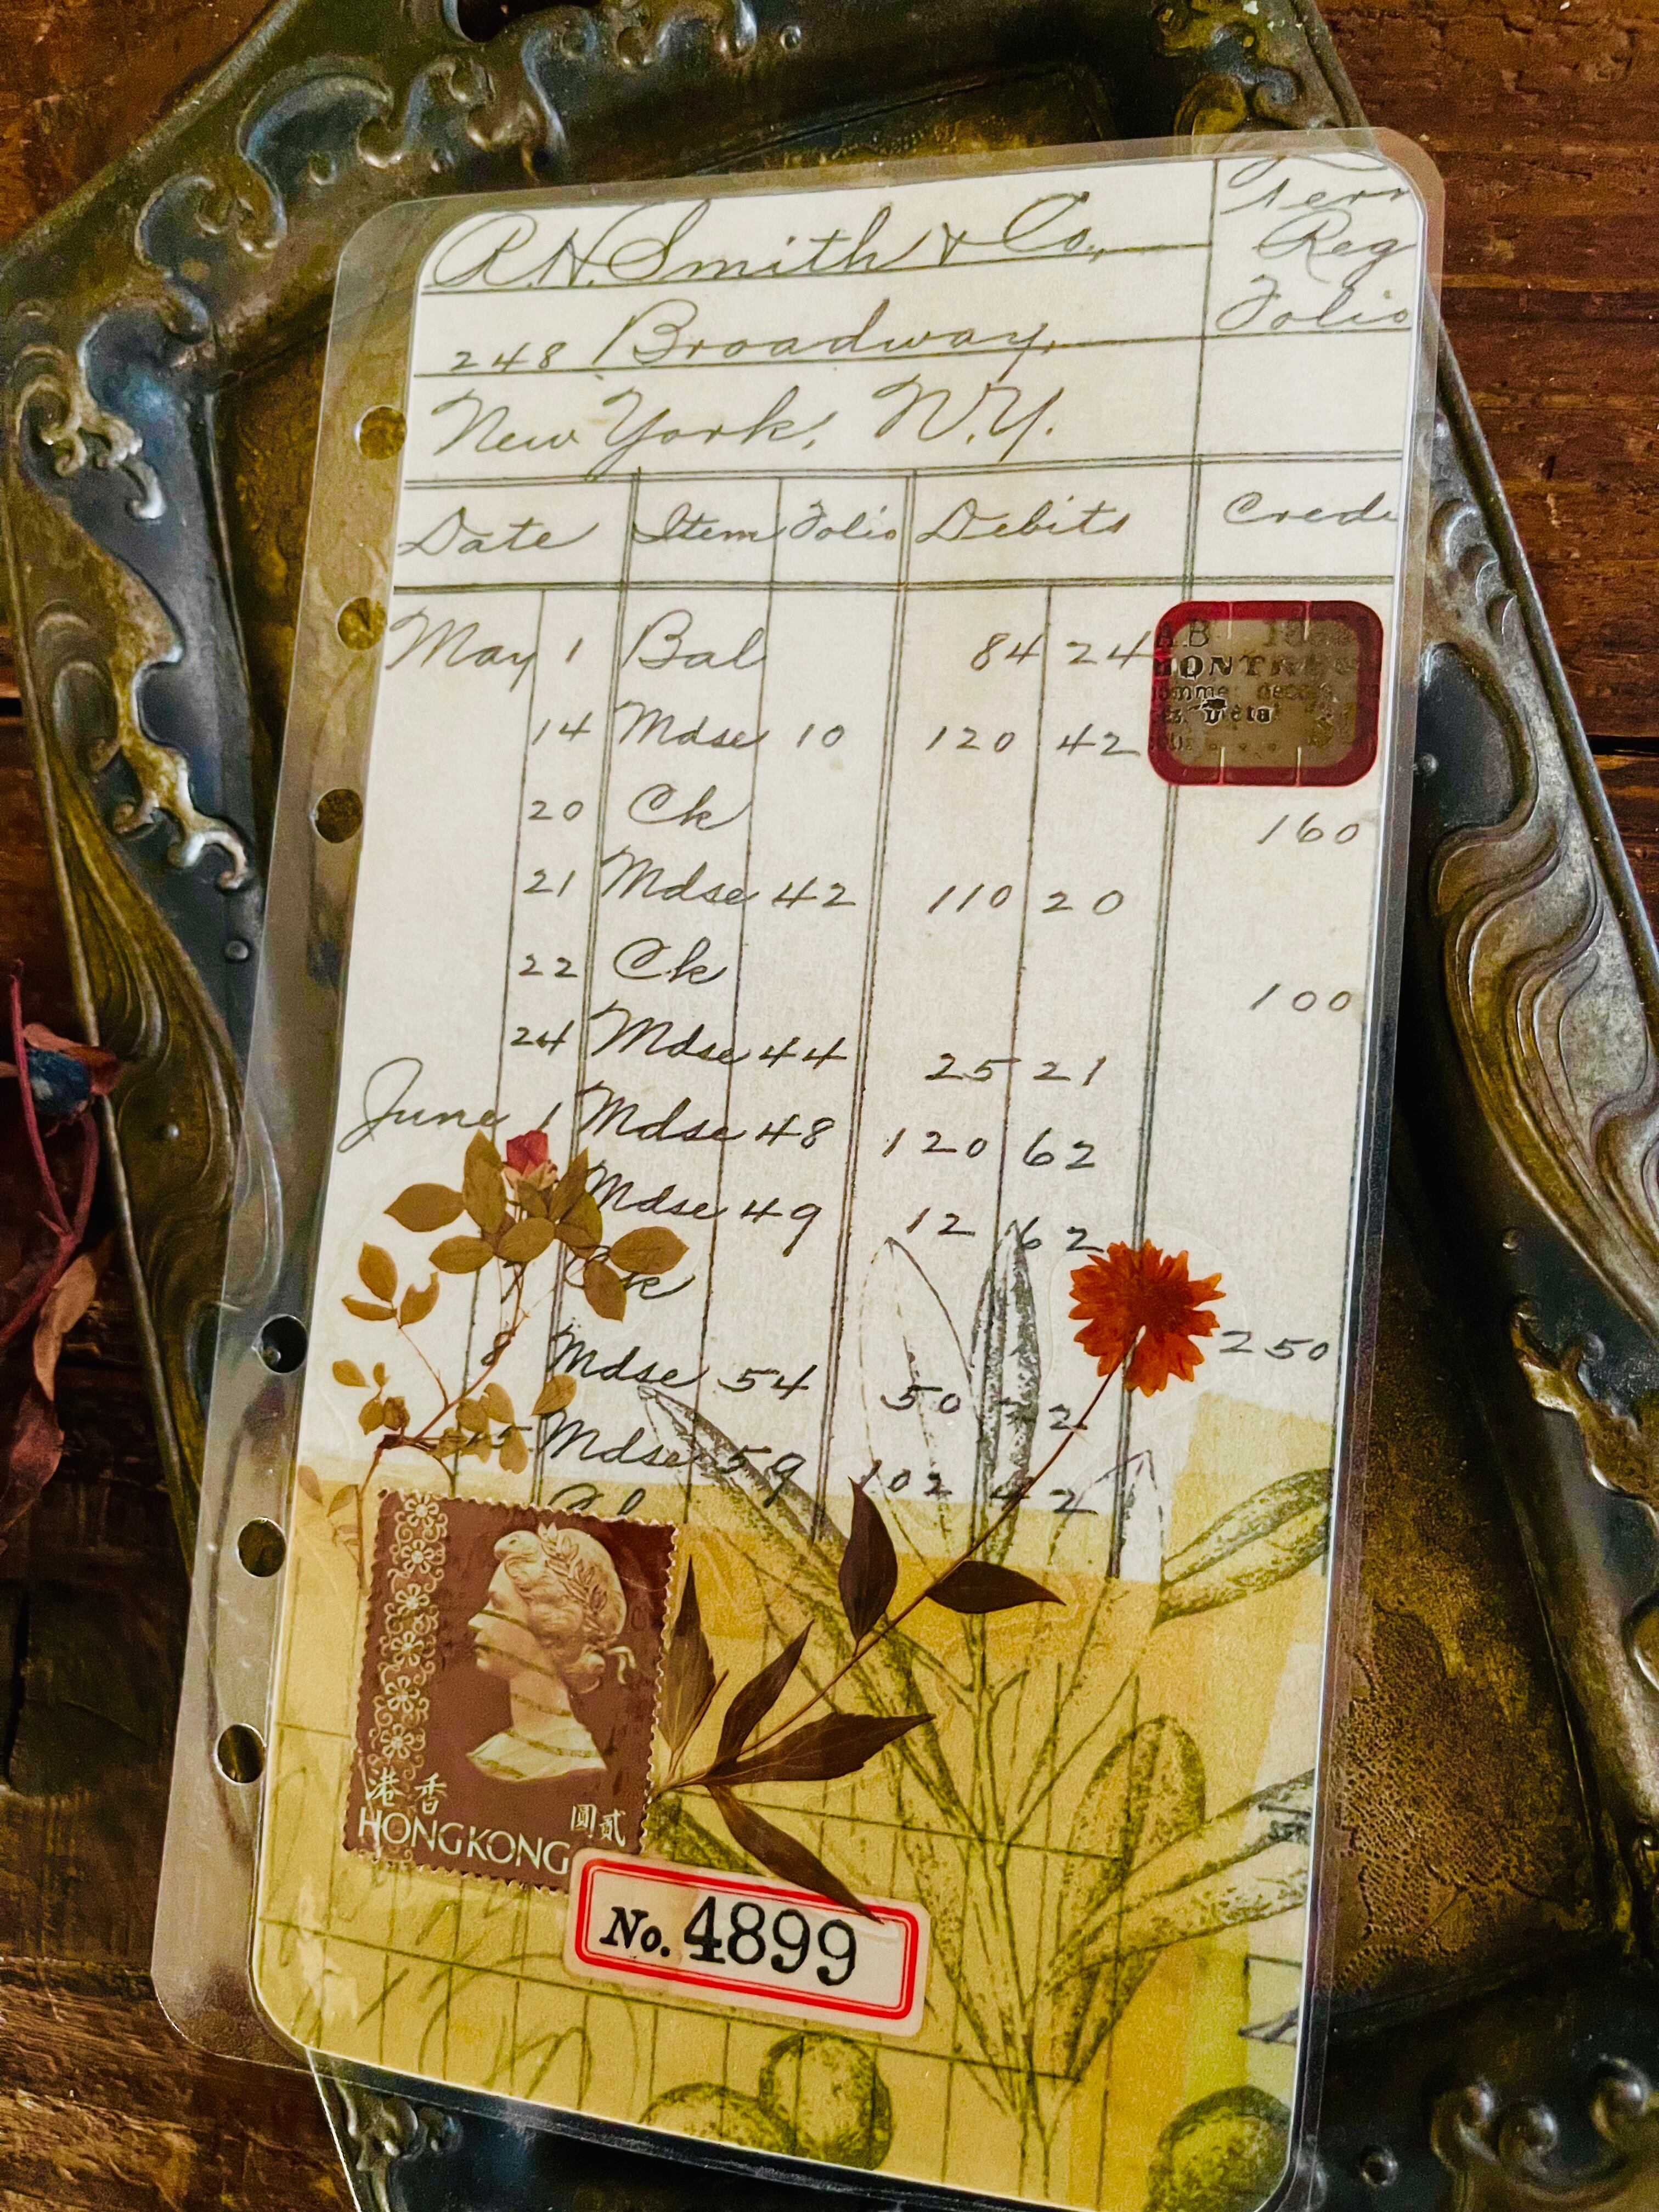 R.N. Smith & Co.,
Reg
Folio
248 Broadway,
New York, N.Y.
Date Item Folio Debits Credi
May 1 Bal 84 24
14 Mdse 10 120 42
20 Ck 160
21 Mdse 42 110 20
22 Ck 100
24 Mdse 44 25 21
June 1 Mdse 48 120 62
Mdse 49 12 62
7 Ck 250
8 Mdse 54 50
Mdse 59 102 42
港香
圓貳
HONG KONG
No. 4899